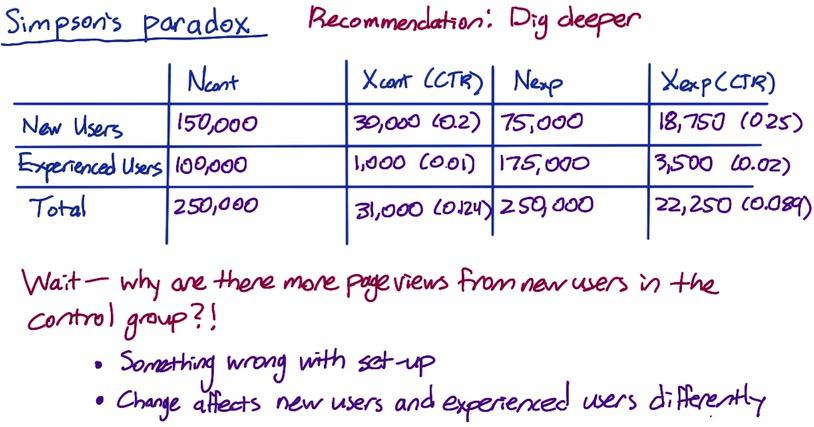 Simpson's paradox Recommendation: Dig deeper
Ncont Xcont (CTR) Nexp Xexp (CTR)
New Users 150,000 30,000 (0.2) 75,000 18,750 (0.25)
Experienced Users 100,000 1,000 (0.01) 175,000 3,500 (0.02)
Total 250,000 31,000 (0.124) 250,000 22,250 (0.089)
Wait — why are there more pageviews from new users in the
control group?!
• Something wrong with set-up
• Change affects new users and experienced users differently